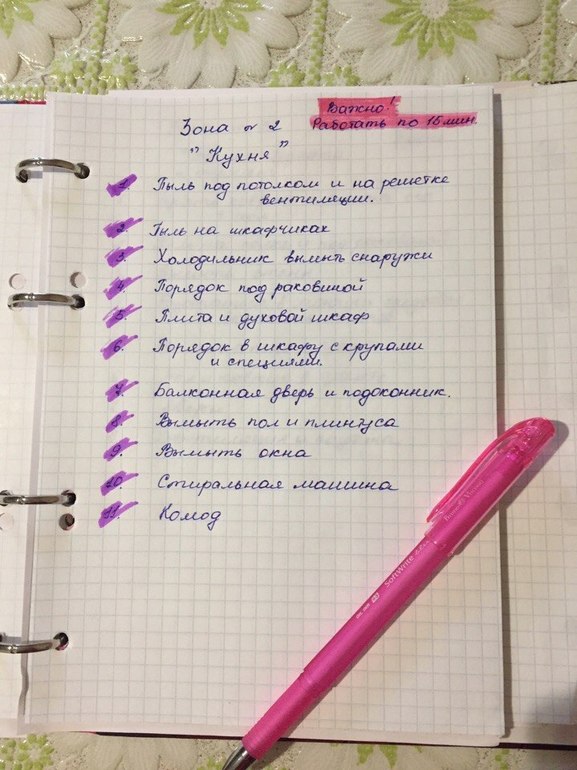 Важно!
Работать по 15 мин.
Зона № 2
"Кухня"
1. Пыль под потолком и на решетке
вентиляции.
2. Пыль на шкафчиках
3. Холодильник вымыть снаружи
4. Порядок под раковиной
5. Плита и духовой шкаф
6. Порядок в шкафу с крупами
и специями.
7. Балконная дверь и подоконник.
8. Вымыть пол и плинтуса
9. Вымыть окна
10. Стиральная машина
11. Комод
SoftWrite
Bruno Visconti